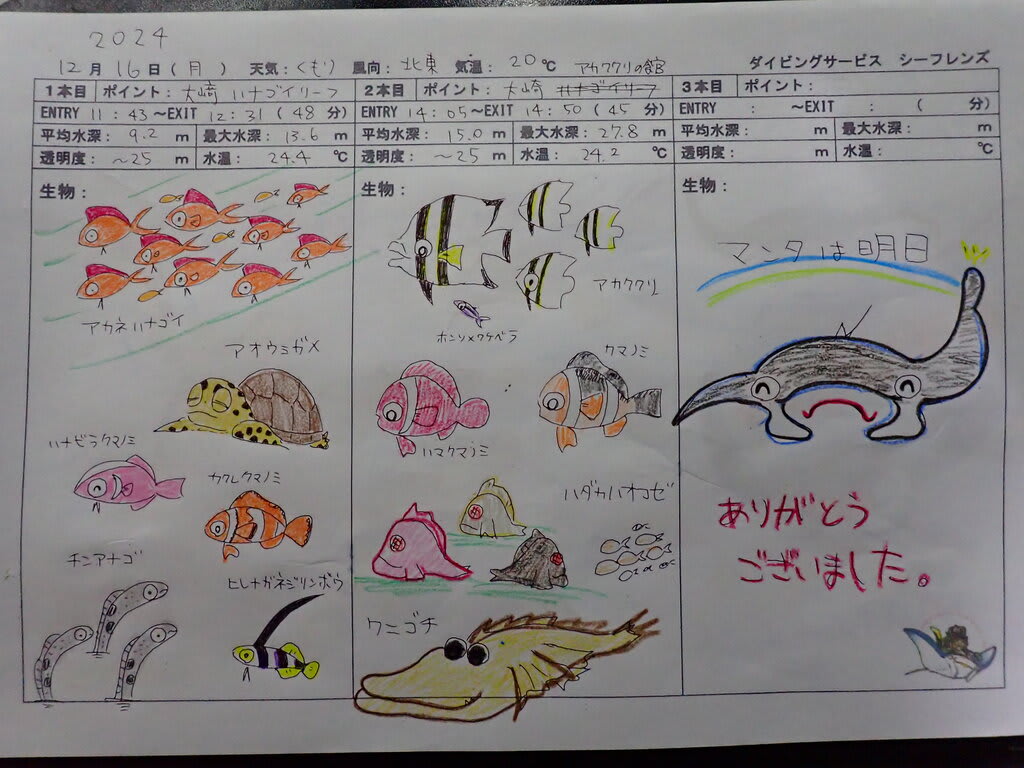 2024
12月16日(月) 天気:くもり 風向:北東 気温:20℃ アカククリの宮 ダイビングサービス シーフレンズ
1本目 ポイント:大崎 ハナゴイリーフ
ENTRY 11:43~EXIT 12:31(48分)
平均水深:9.2m 最大水深:13.6m
透明度:~25m 水温:24.4℃
生物:
アカネハナゴイ
アオウミガメ
ハナビラクマノミ
カクレクマノミ
チンアナゴ
ヒレナガネジリンボウ
2本目 ポイント:大崎 ハナゴイリーフ
ENTRY 14:05~EXIT 14:50(45分)
平均水深:15.0m 最大水深:27.8m
透明度:~25m 水温:24.2℃
生物:
アカククリ
ホンソメワケベラ
クマノミ
ハマクマノミ
ハダカハオコゼ
ワニゴチ
3本目 ポイント:
ENTRY : ~EXIT : ( 分)
平均水深: m 最大水深: m
透明度: m 水温: ℃
生物:
マンタは明日
ありがとう
ございました。